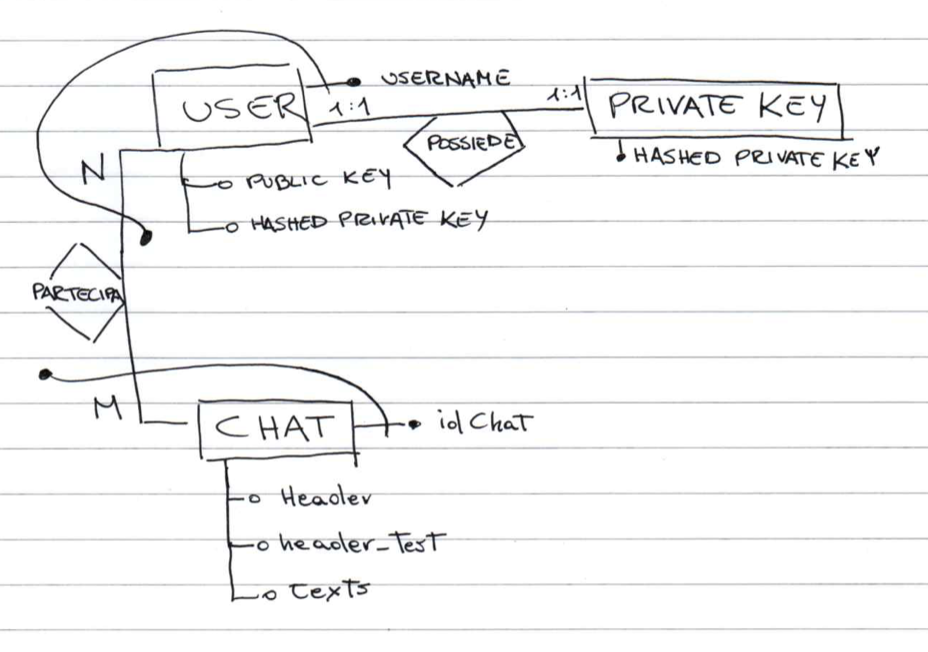 USERNAME
USER
1:1
1:1
PRIVATE KEY
POSSIEDE
HASHED PRIVATE KEY
N
PUBLIC KEY
HASHED PRIVATE KEY
PARTECIPA
M
CHAT
idChat
Header
header_Test
Texts